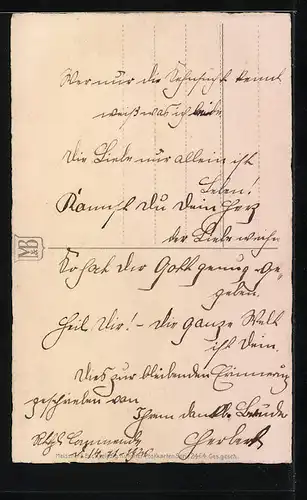 Wer nur die Sehnsucht kennt
weiß was ich leide
Die Liebe nur allein ist
Leben!
Kannst Du Dein Herz
der Liebe weihn
So hat Dir Gott genug Ge-
geben.
Heil Dir! – Die ganze Welt
ist Dein.
Dies zur bleibenden Erinnerung
geschrieben von
Ihrem dankb. Freunde
Herbert
M&B